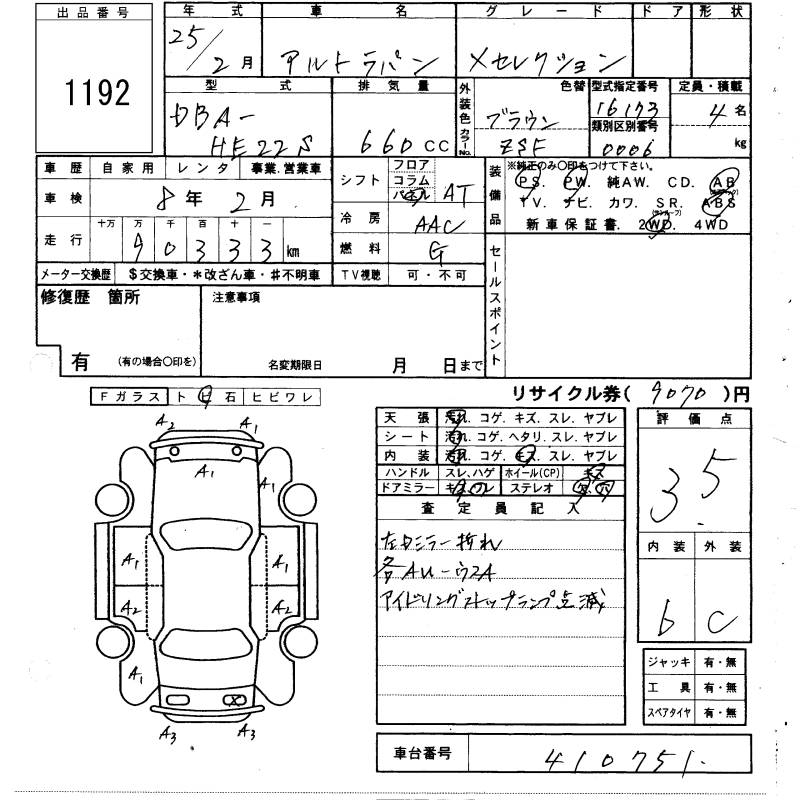 出品番号 年式 車名 グレード ドア 形状
1192
25/2月 アルトラパン Xセレクション
型式 排気量 外装色 色替 型式指定番号 定員・積載
カラーNo.
DBA-HE22S 660CC ブラウン ZSF 16173 4名
類別区別番号
0006 kg
車歴 自家用 レンタ 事業.営業車
車検 8年2月
走行 十万 万 千 百 十 一
90333km
メーター交換歴 $交換車・*改ざん車・#不明車
シフト フロア コラム パネル AT
冷房 AAC
燃料 G
TV視聴 可・不可
装備品 ※純正のみ〇印をつけて下さい。
PS. PW. 純AW. CD. AB
TV. ナビ. カワ. SR. ABS
新車保証書. 2WD. 4WD
セールスポイント
修復歴 箇所
有 (有の場合〇印を)
注意事項
名変期限日 月 日まで
リサイクル券( 9070 )円
Fガラス トビ石 ヒビワレ
A2 A1
A1 A1
A1 A1
A2 A2
A1 A1
A3 A3
天張 汚れ.コゲ.キズ.スレ.ヤブレ
シート 汚れ.コゲ.ヘタリ.スレ.ヤブレ
内装 汚れ.コゲ.キズ.スレ.ヤブレ
ハンドル スレ.ハゲ ホイール(CP) キズ
ドアミラー キズ.ワレ ステレオ 欠.穴
査定員記入
左ドミラー折れ
各AU-ウスA
アイドリングストップランプ点滅
評価点
3.5
内装 外装
b C
ジャッキ 有・無
工具 有・無
スペアタイヤ 有・無
車台番号 410751.